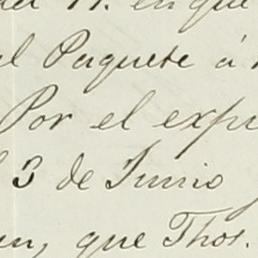 en que
al Paquete á
Por el expr
3 de Junio
en, que Thos.